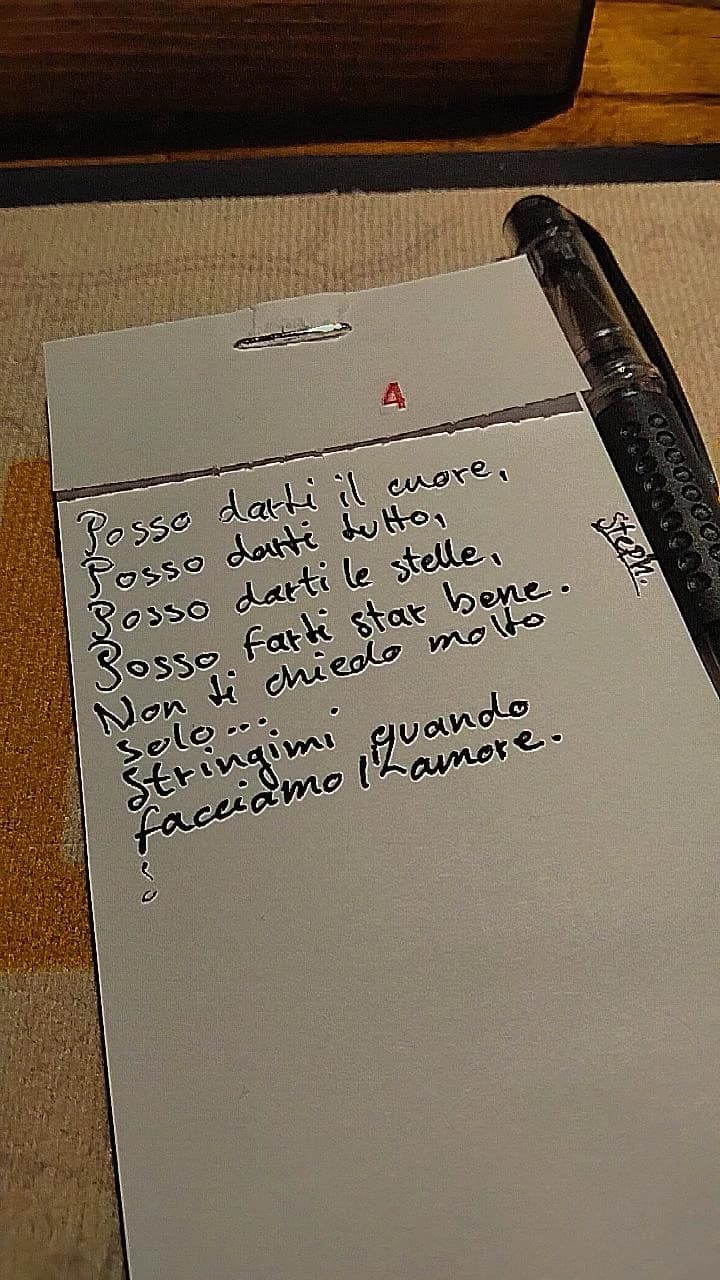 4
Posso darti il cuore,
Posso darti tutto,
Posso darti le stelle,
Posso farti star bene.
Non ti chiedo molto
solo...
Stringimi quando
facciamo l'amore.
Steph.